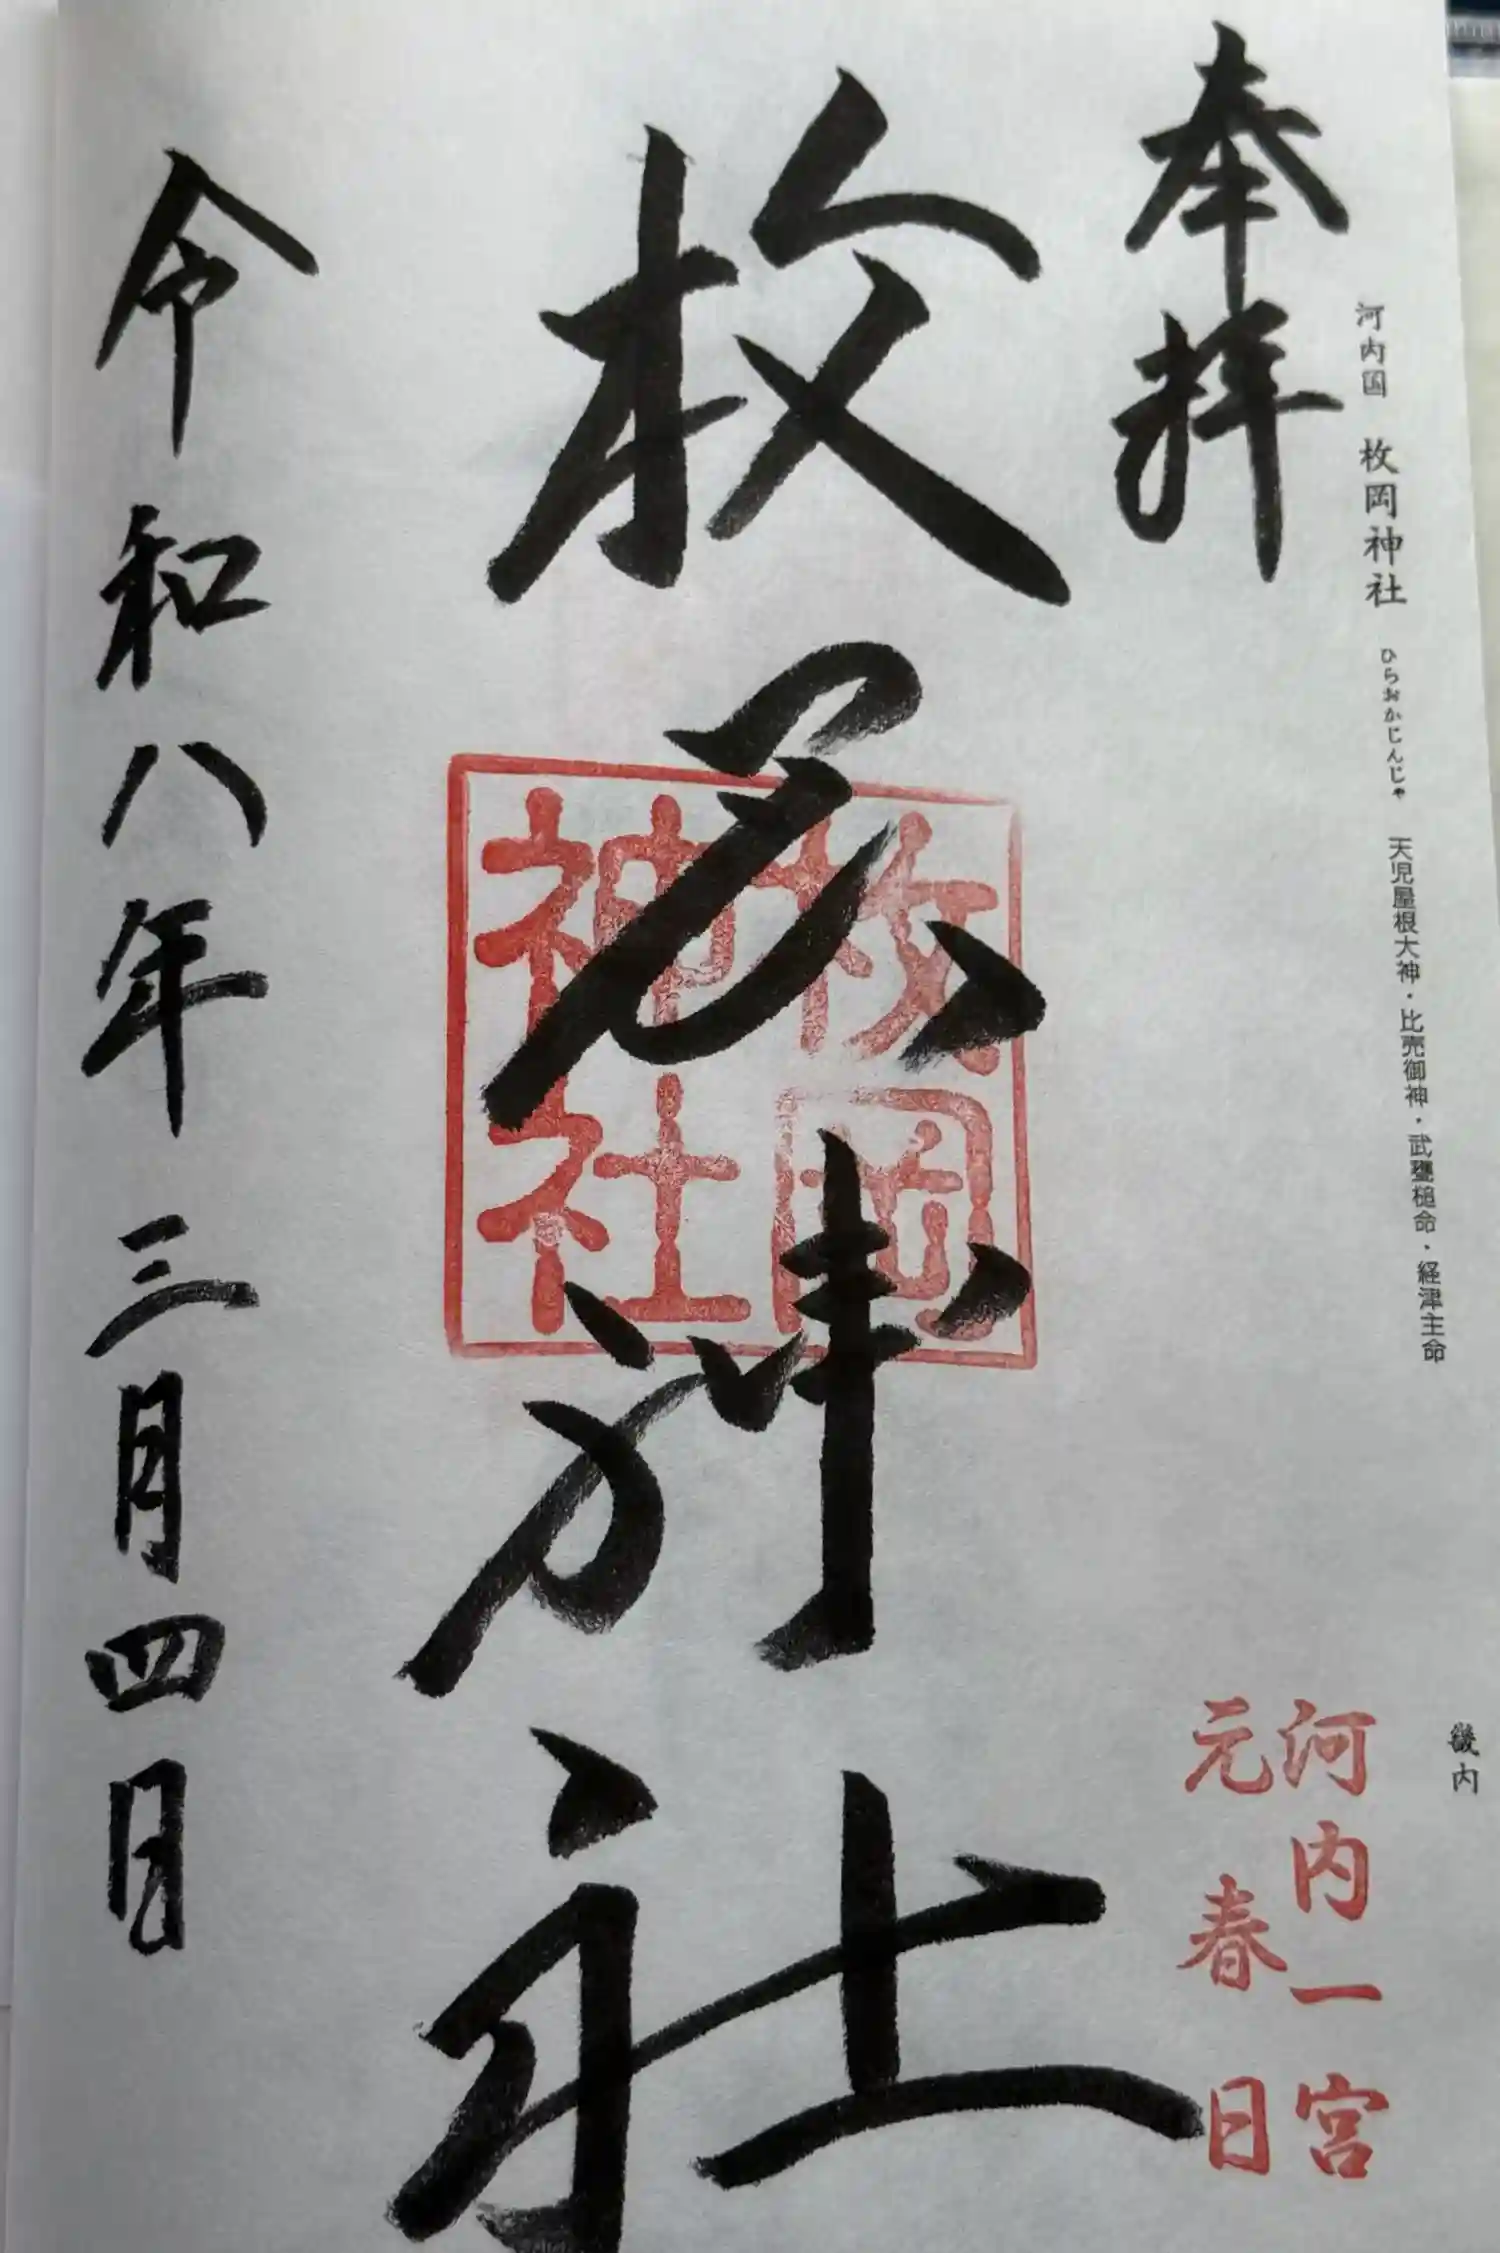 畿内
河内国 枚岡神社 ひらおかじんじゃ 天児屋根大神・比売御神・武甕槌命・経津主命
奉拝
河内一宮
元春日
枚岡神社
枚岡
神社
令和八年三月四日